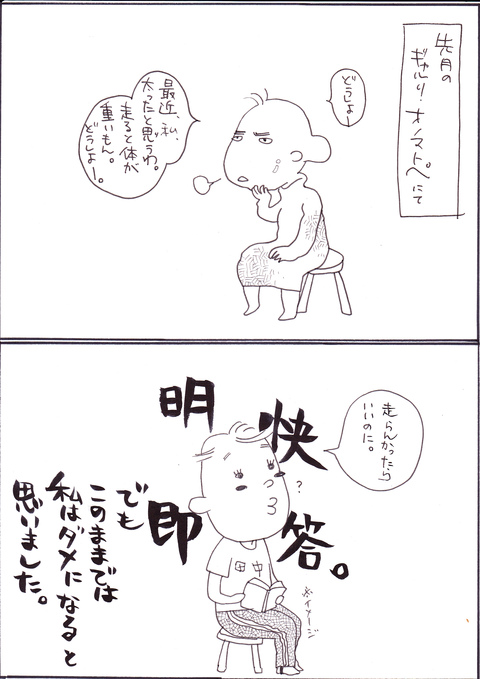 先月の
ギャルリ・オノマトペにて
どうしよー
最近、私、
太ったと思うわ。
走ると体が
重いもん。
どうしよー。
走らんかったら
いいのに。
明快
即答。
?
でも
このままでは
私はダメになると
思いました。
※イメージ